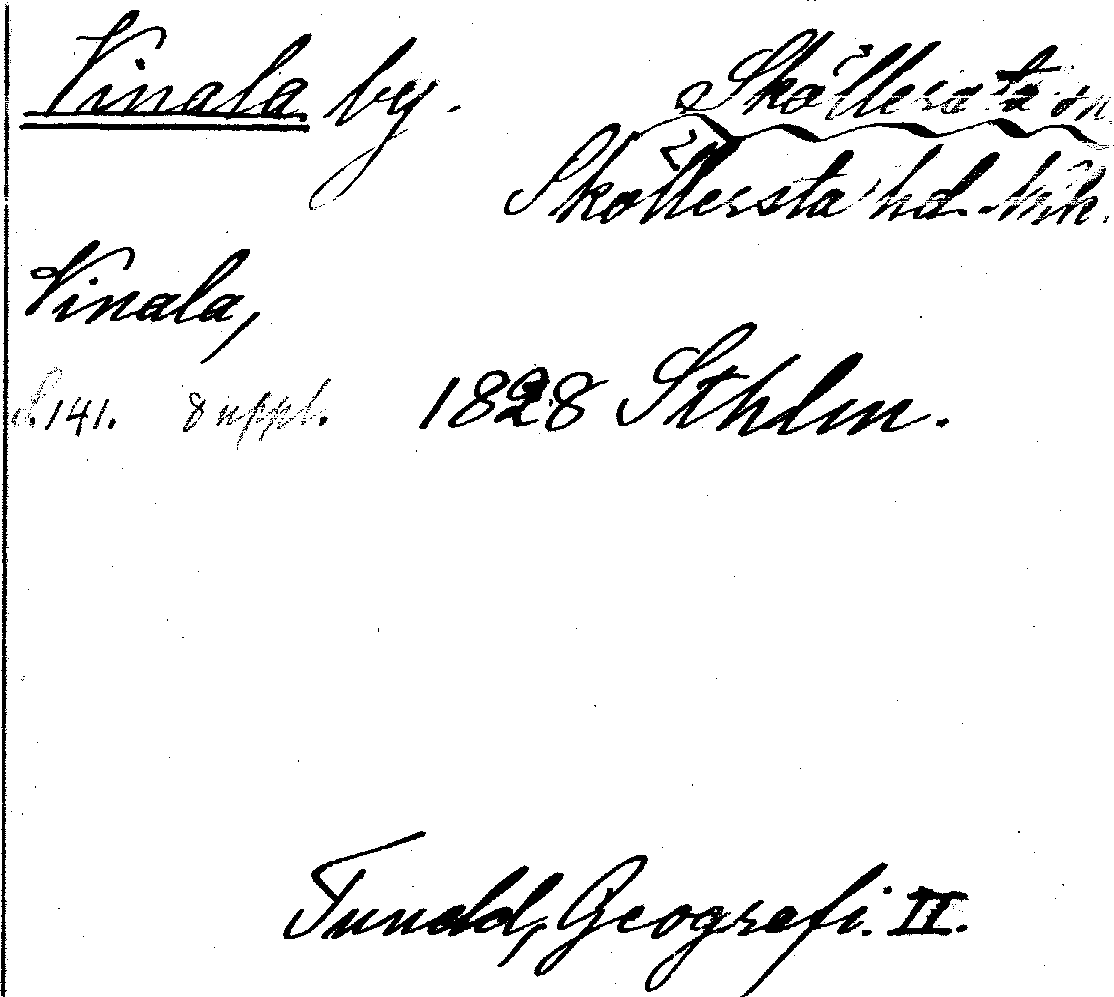 Vinala by. Sköllersta sn
Sköllersta hd. Nke.
Vinala,
s. 141. 8 uppl. 1828 Sthlm.
Tunald, Geografi. II.